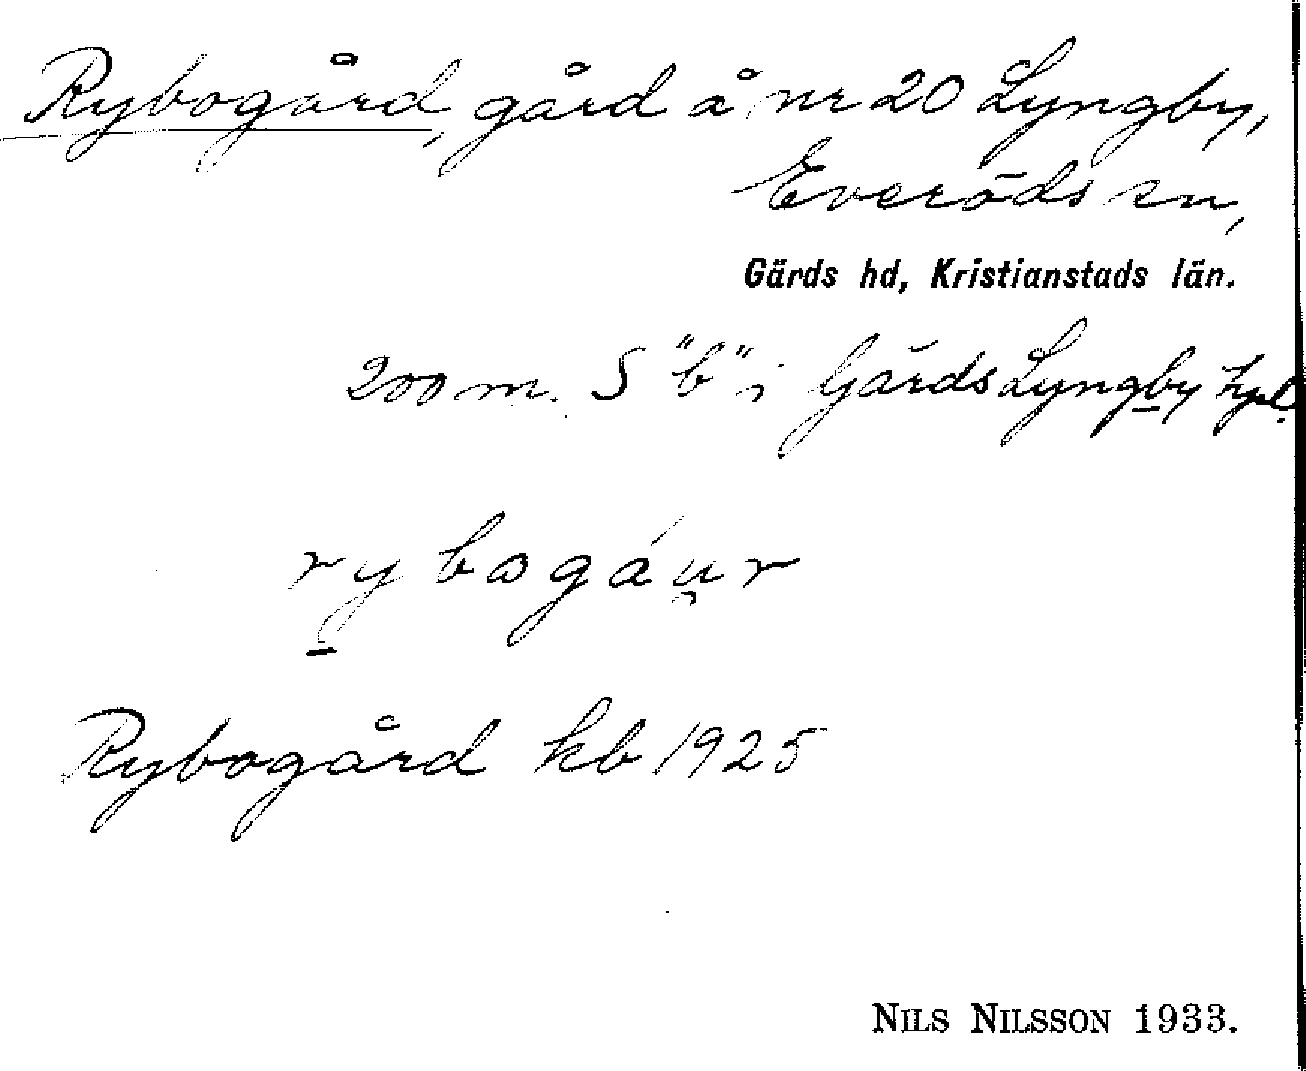 Rybogård, gård å nr 20 Lyngby,
Everöds sn,
Gärds hd, Kristianstads län.
200 m. S "b" i Gärds Lyngby hpl.
rybogáu̯r
Rybogård kb 1925
NILS NILSSON 1933.